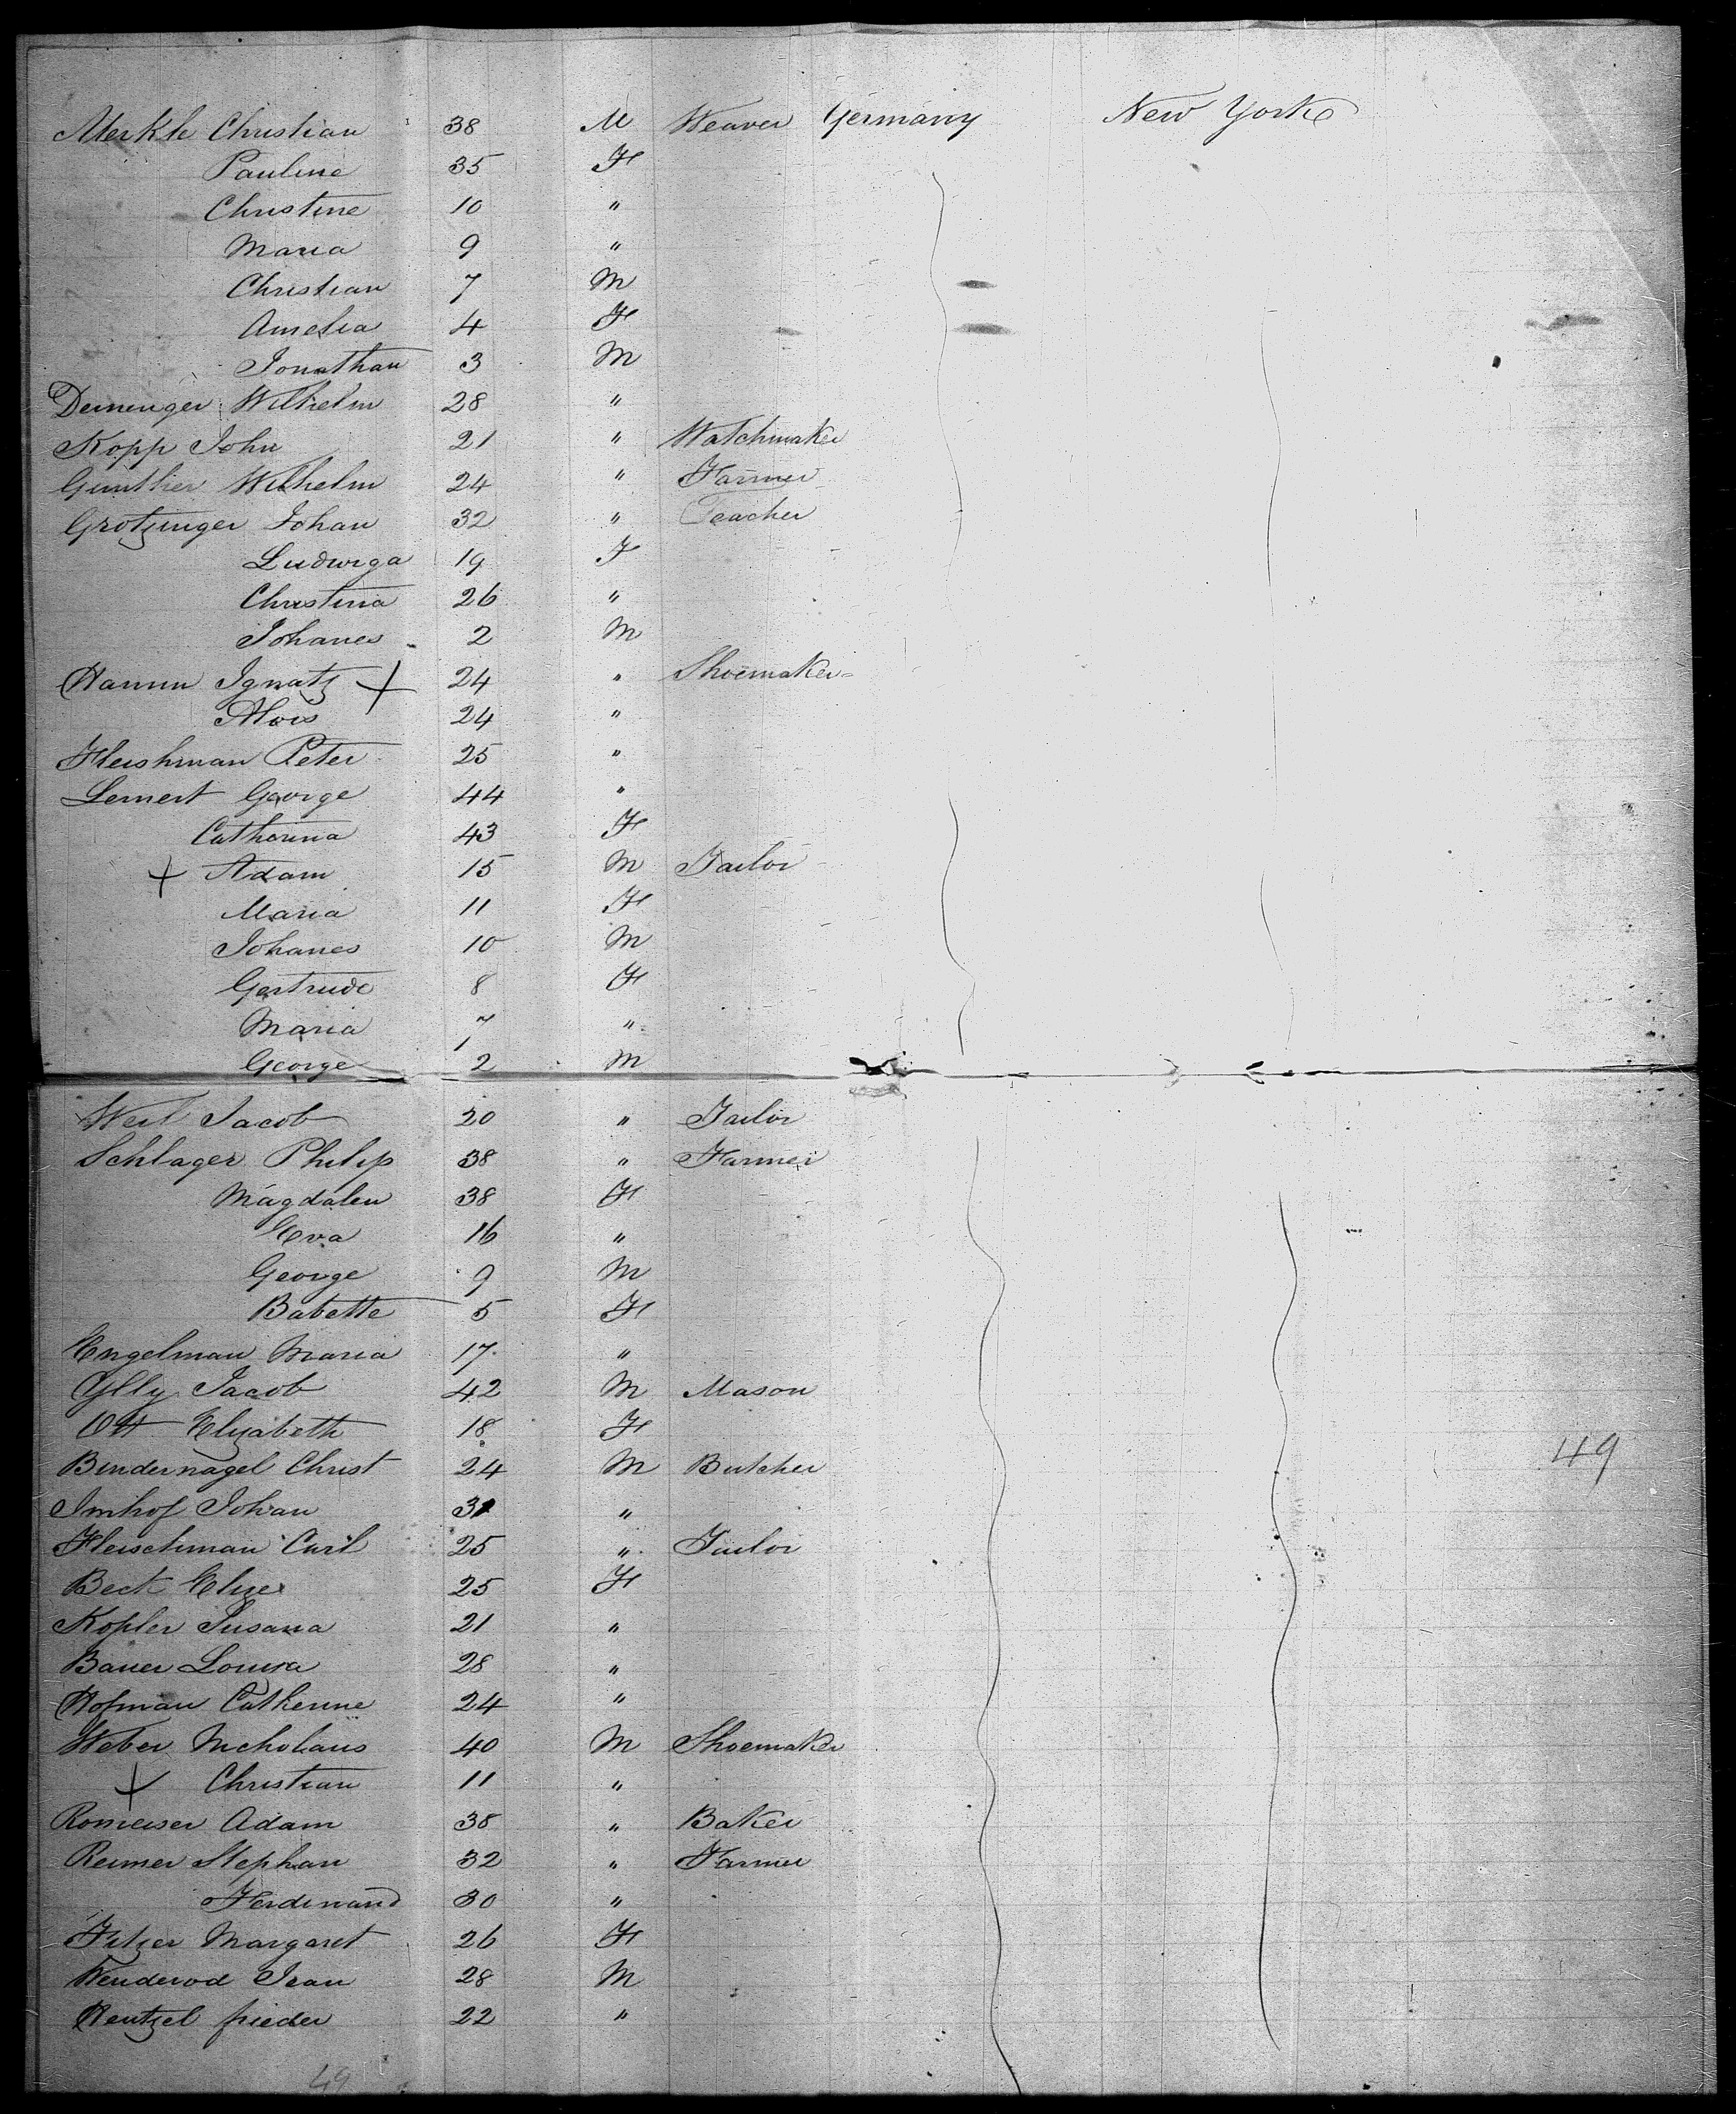 Merkle Christian 38 M Weaver Germany New York
Pauline 35 F
Christine 10 "
Maria 9 "
Christian 7 M
Amelia 4 F
Jonathan 3 M
Demenger Wilhelm 28 "
Kopp John 21 " Watchmaker
Gunther Wilhelm 24 " Farmer
Grotzinger Johan 32 " Teacher
Ludwiga 19 F
Christina 26 "
Johanes 2 M
Hamm Ignatz + 24 " Shoemaker
Alois 24 "
Fleishman Peter 25 "
Lemert George 44 "
Catherina 43 F
+ Adam 15 M Tailor
Maria 11 F
Johanes 10 M
Gertrude 8 F
Maria 7 "
George 2 M
Weil Jacob 20 " Tailor
Schlager Philip 38 " Farmer
Magdalen 38 F
Eva 16 "
George 9 M
Babette 5 F
Engelman Maria 17 "
Jacob 42 M Mason
Ott Elizabeth 18 F
Bindernagel Christ 24 M Butcher
49
Imhof Johan 31 "
Fleischman Carl 25 " Tailor
Beck Elise 25 F
Kopler Susana 21 "
Bauer Louisa 28 "
Hofman Catherine 24 "
Weber Nicholaus 40 M Shoemaker
+ Christian 11 "
Romeiser Adam 38 " Baker
Reimer Stephan 32 " Farmer
Ferdinand 30 "
Fitzer Margaret 26 F
Wenderod Jean 28 M
Hentzel frieder 22 "
49